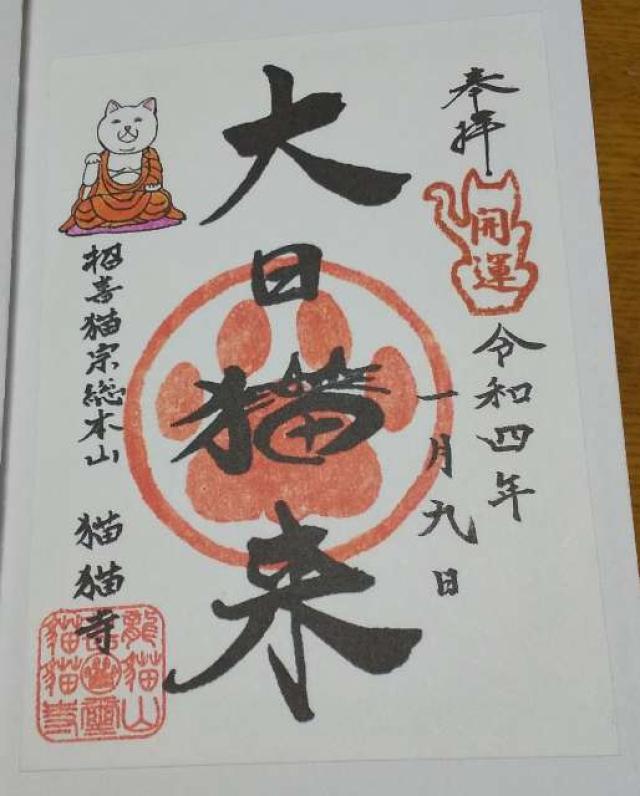 奉拝
開運
令和四年
一月九日
大日猫来
招喜猫宗総本山 猫猫寺
龍猫山
猫猫寺